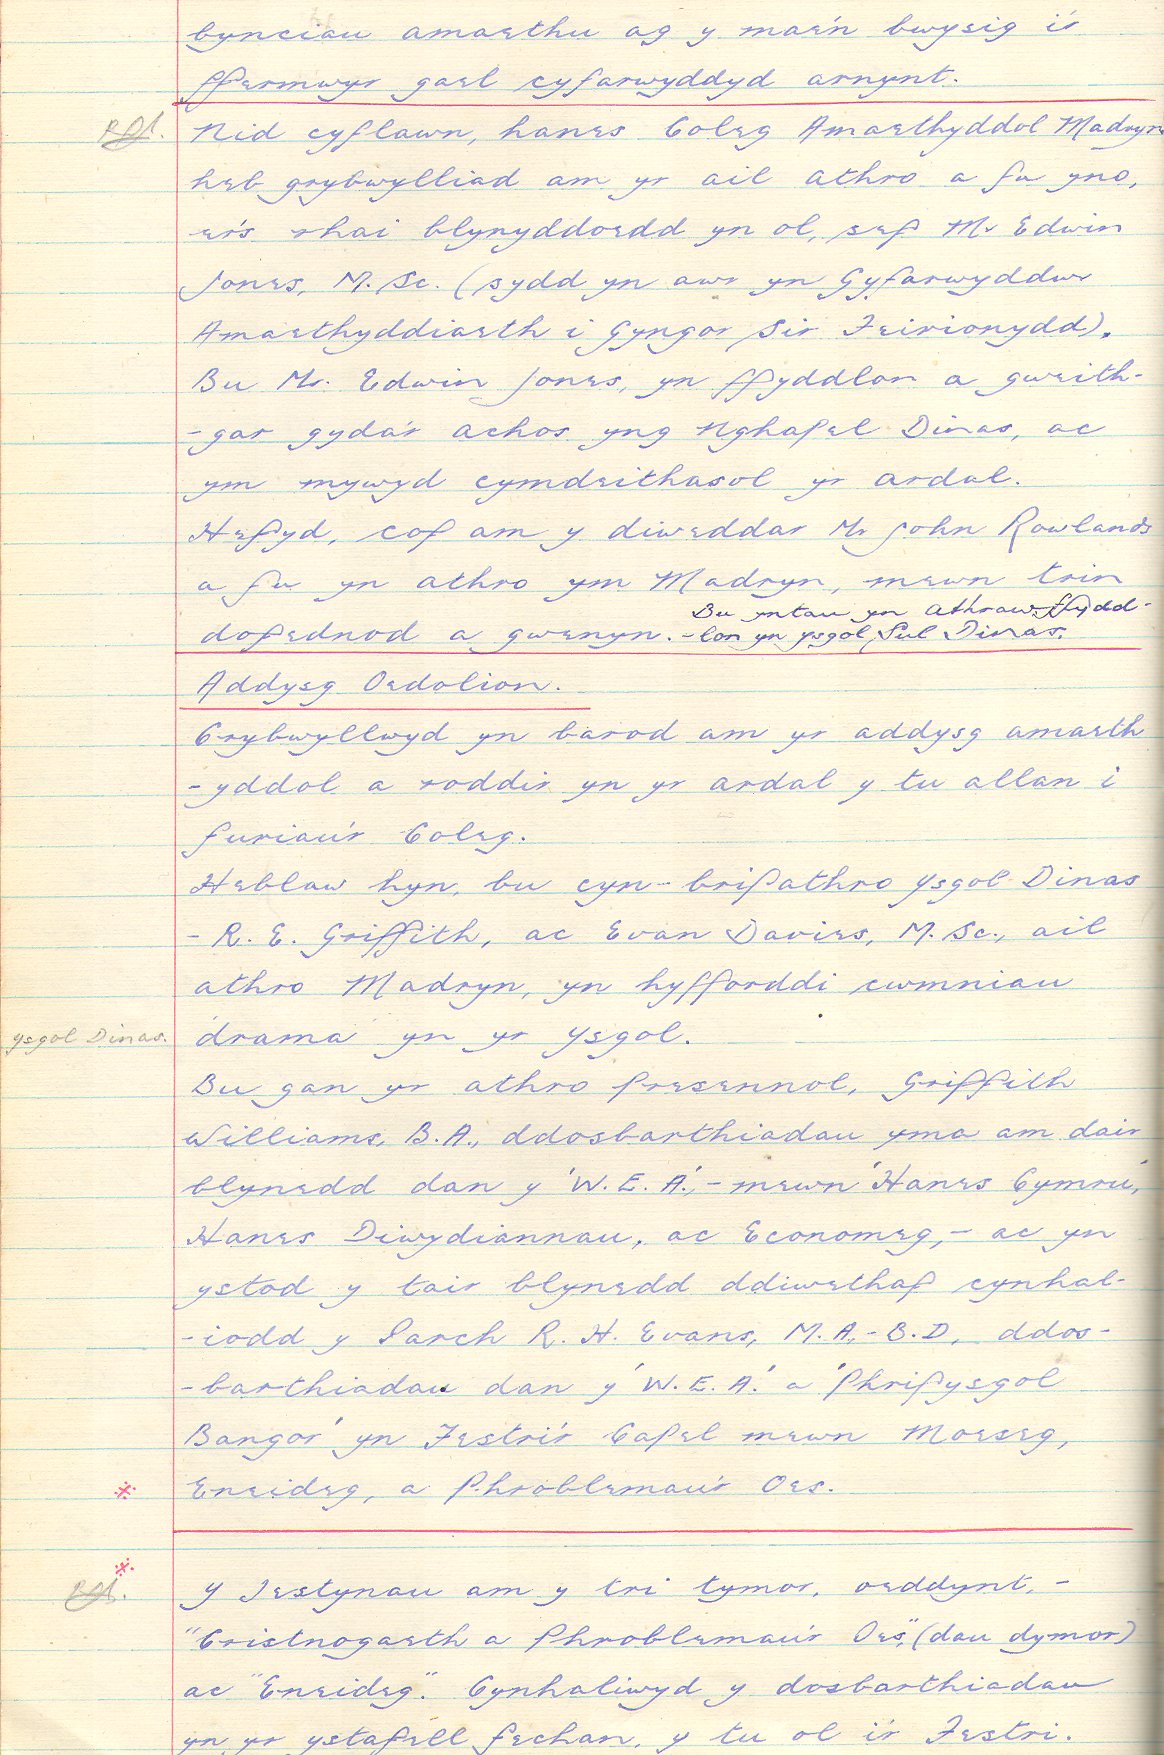 bynciau amaethu ag y mae'n bwysig i'r
ffermwyr gael cyfarwyddyd arnynt.
Nid cyflawn, hanes Coleg Amaethyddol Madryn
heb grybwylliad am yr ail athro a fu yno,
er's rhai blynyddoedd yn ol, sef Mr Edwin
Jones, M.Sc. (sydd yn awr yn Gyfarwyddwr
Amaethyddiaeth i Gyngor Sir Feirionydd).
Bu Mr. Edwin Jones, yn ffyddlon a gweith-
-gar gyda'r achos yng Nghapel Dinas, ac
ym mywyd cymdeithasol yr ardal.
Hefyd, cof am y diweddar Mr John Rowlands
a fu yn athro ym Madryn, mewn trin
dofednod a gwenyn. Bu yntau yn athraw ffydd-
-lon yn ysgol Sul Dinas.
Addysg Oedolion.
Crybwyllwyd yn barod am yr addysg amaeth
-yddol a roddir yn yr ardal y tu allan i
furiau'r Coleg.
Heblaw hyn, bu cyn-brifathro Ysgol Dinas
- R. E. Griffith, ac Evan Davies, M.Sc., ail
athro Madryn, yn hyfforddi cwmniau
ysgol Dinas.
drama yn yr Ysgol.
Bu gan yr athro presennol, Griffith
Williams, B.A., ddosbarthiadau yma am dair
blynedd dan y 'W.E.A.', - mewn 'Hanes Cymru',
Hanes Diwydiannau, ac Economeg, - ac yn
ystod y tair blynedd ddiwethaf cynhal-
-iodd y Parch R. H. Evans, M.A.,-B.D. ddos-
-barthiadau dan y 'W.E.A.' a 'Phrifysgol
Bangor' yn Festri'r Capel mewn Moeseg,
* Eneideg, a Phroblemau'r Oes.
*
Y Testynau am y tri tymor, oeddynt, -
"Cristnogaeth a Phroblemau'r Oes", (dau dymor)
ac "Eneideg". Cynhaliwyd y dosbarthiadau
yn yr ystafell fechan, y tu ol i'r Festri.